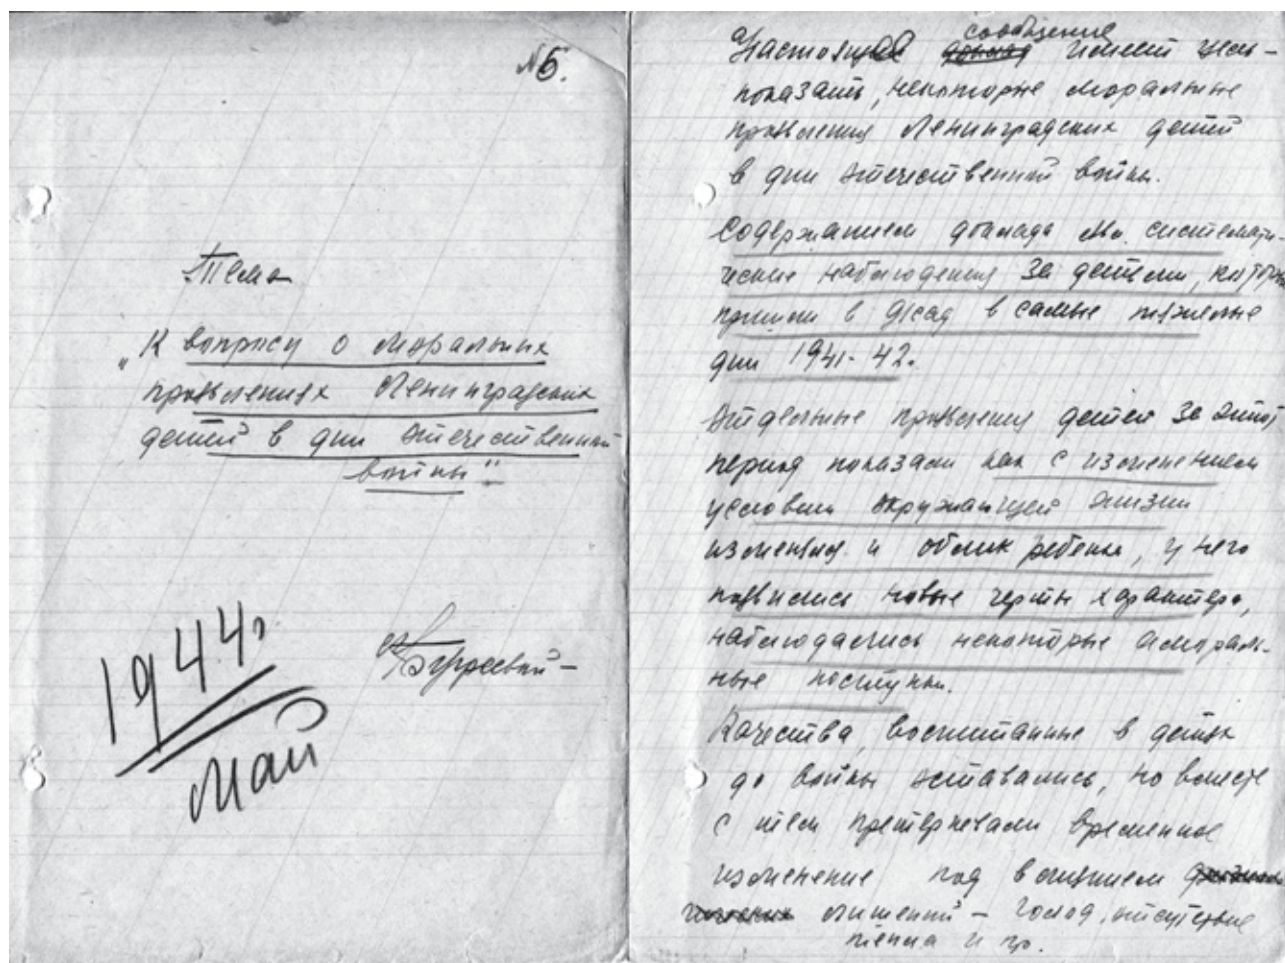 №5.
Тема
„К вопросу о моральных
проявлениях Ленинградских
детей в дни отечественной
войны"
1944г
Май
сообщение
Настоящее доклад имеет цель –
показать, некоторые моральные
проявления Ленинградских детей
в дни отечественной войны.
Содержанием доклада явл. системати-
ческие наблюдения за детьми, которые
пришли в д/сад в самые тяжелые
дни 1941-42.
Отдельные проявления детей за этот
период показали как с изменением
условий окружающей жизни
изменялся и облик ребенка, у него
появились новые черты характера,
наблюдались некоторые амораль-
ные поступки.
Качества, воспитанные в детях
до войны оставались, но вместе
с тем претерпевали временное
изменение под влиянием
лишений – голод, отсутствие
тепла и пр.